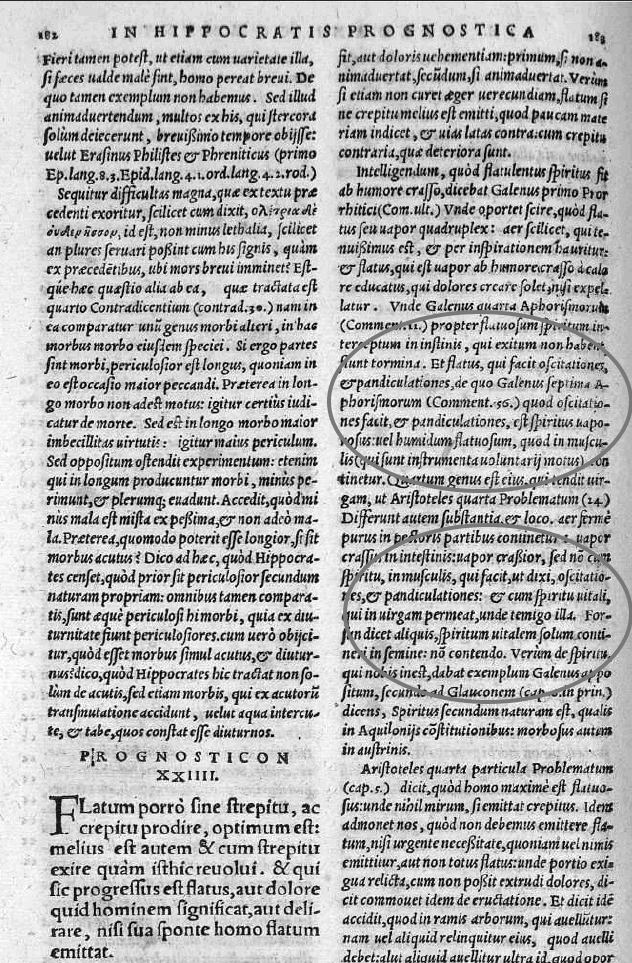 182 IN HIPPOCRATIS PROGNOSTICA 183
Fieri tamen potest, ut etiam cum varietate illa,
si fæces ualde malè sint, homo pereat brevi. De
quo tamen exemplum non habemus. Sed illud
animaduertendum, multos ex his, qui stercora
solùm deiecerunt, breuißimo tempore obijsse:
uelut Erasinus Philistes & Phreniticus (primo
Ep.lang.8.3.Epid.lang.4.1.ord.lang.4.2.rod.)
Sequitur difficultas magna, quæ ex textu præ
cedenti exoritur, scilicet cum dixit,
id est, non minus lethalia, scilicet
an plures seruari poßint cum his signis, quàm
ex præcedẽtibus, ubi mors breui imminet? Est-
q́ue hæc quæstio alia ab ea, quæ tractata est
quarto Contradicentium (contrad.30.) nam in
ea comparatur unũ genus morbi alteri, in hac
morbus morbo eiusdem speciei. Si ergo partes
sint morbi, periculosior est longus, quoniam in
eo est occasio maior peccandi. Præterea in lon-
go morbo non adest motus: igitur certiùs iudi-
catur de morte. Sed est in longo morbo maior
imbecillitas uirtutis: igitur maius periculum.
Sed oppositum ostendit experimentum: etenim
qui in longum producuntur morbi, minùs pe-
rimunt, & plerumq; euadunt. Accedit, quòd mi
nùs mala est mista ex peßima, & non adeò ma-
la. Præterea, quomodo poterit esse longior, si sit
morbus acutus? Dico ad hæc, quòd Hippocra-
tes censet, quòd prior sit periculosior secundum
naturam propriam: omnibus tamen compara-
tis, sunt æquè periculosi hi morbi, quia ex diu-
turnitate fiunt periculosiores. cum uerò obijci-
tur, quòd esset morbus simul acutus, & diutur-
nus: dico, quòd Hippocrates hic tractat non so-
lùm de acutis, sed etiam morbis, qui ex acutorũ
transmutatione accidunt, uelut aqua intercu-
te, & tabe, quos constat esse diuturnos.
PROGNOSTICON
XXIIII.
FLatum porrò sine strepitu, ac
crepitu prodire, optimum est:
melius est autem & cum strepitu
exire quàm isthic reuolui. & qui
sic progressus est flatus, aut dolore
quid hominem significat, aut deli-
rare, nisi sua sponte homo flatum
emittat.
sit, aut doloris uehementiam: primum, si non a-
nimaduertat, secũdum, si animaduertat. Verùm
si etiam non curet æger uerecundiam, flatum si
ne crepitu melius est emitti, quod paucam mate
riam indicet, & uias latas contra: cum crepitu
contraria, quæ deteriora sunt.
Intelligendum, quòd flatulentus spiritus fit
ab humore crasso, dicebat Galenus primo Pror
rhitici (Com.ult.) Vnde oportet scire, quòd fla-
tus seu uapor quadruplex: aer scilicet, qui te-
nuißimus est, & per inspirationem hauritur:
& flatus, qui est uapor ab humore crasso à calo
re educatus, qui dolores creare solet, nisi expel-
latur. Vnde Galenus quarta Aphorismorum
(Comment.11.) propter flatuosum spiritum in-
terceptum in instinis, qui exitum non habent
fiunt tormina. Et flatus, qui facit oscitationes,
& pandiculationes, de quo Galenus septima A-
phorismorum (Comment.56.) quod oscitatio-
nes facit, & pandiculationes, est spiritus uapo-
rosus: uel humidum flatuosum, quod in muscu-
lis (qui sunt instrumenta uoluntarij motus) con
tinetur. Quartum genus est eius, qui tendit uir-
gam, ut Aristoteles quarta Problematum (24.)
Differunt autem substantia, & loco. aer fermè
purus in pectoris partibus continetur: uapor
crassus in intestinis: uapor craßior, sed nõ cum
spiritu, in musculis, qui facit, ut dixi, oscitatio-
nes, & pandiculationes: & cum spiritu uitali,
qui in uirgam permeat, unde temigo illa. For-
san dicet aliquis, spiritum uitalem solum conti-
neri in semine: nõ contendo. Verùm de spiritu,
qui nobis inest, dabat exemplum Galenus appo
situm, secundo ad Glauconem (cap.0.in prin.)
dicens, Spiritus secundum naturam est, qualis
in Aquilonijs cõstitutionibus: morbosus autem
in austrinis.
Aristoteles quarta particula Problematum
(cap.5.) dicit, quòd homo maximè est flatuo-
sus: unde nihil mirum, si emittat crepitus. Idem
admonet nos, quòd non debemus emittere fla-
tum, nisi urgente necessitate, quoniam uel nimis
emittitur, aut non totus flatus: unde portio exi-
gua relicta, cum non poßit extrudi dolores, di-
cit commouet idem de eructatione. Et dicit idẽ
accidit, quod in ramis arborum, qui auelluntur:
nam uel aliquid relinquitur eius, quod auelli
debet: aluì aliquid auellitur ultra id, quod opor